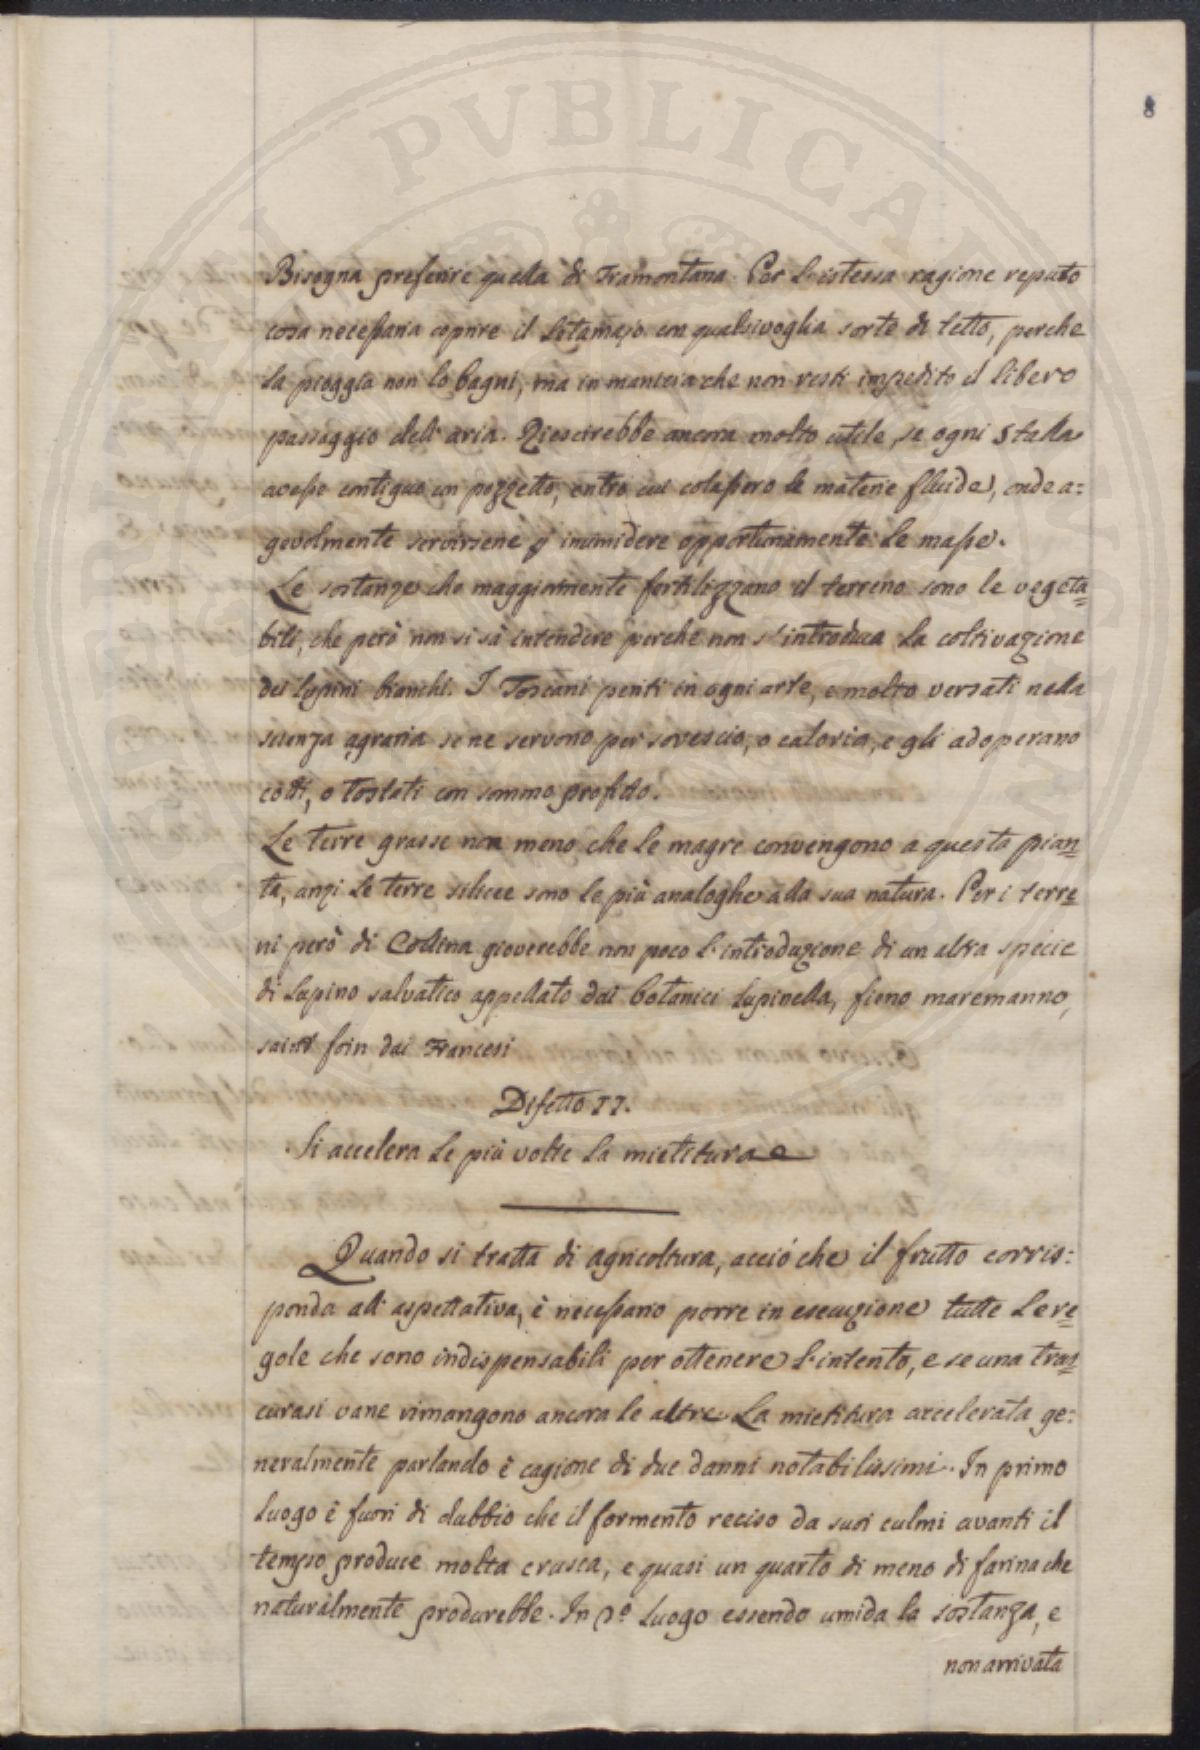 8
Bisogna preferire quella di Tramontana. Per l'istessa ragione reputo
cosa necessaria coprire il Letamajo con qualsivoglia sorte di tetto, perche
la pioggia non lo bagni, ma in maniera che non resti impedito il libero
passaggio dell'aria. Riescirebbe ancora molto utile, se ogni Stalla
avesse contiguo un pozzetto, entro cui colassero le materie fluide, onde a=
gevolmente servirsene p inumidere opportunamente le masse.
Le sostanze che maggiormente fertilizzano il terreno sono le vegeta=
bili, che però non si sà intendere perche non s'introduca la coltivazione
dei lupini bianchi. I Toscani periti in ogni arte, e molto versati nella
scienza agraria se ne servono per sovescio, o caloria, e gli adoperano
cotti, o tostati con sommo profitto.
Le terre grasse non meno che le magre convengono a questa pian=
ta, anzi le terre silicee sono le più analoghe alla sua natura. Per i terre=
ni però di Collina gioverebbe non poco l'introduzione di un altra specie
di Lupino salvatico appellato dai botanici Lupinella, fieno maremanno,
saint foin dai Francesi
Difetto II.
Si accelera le più volte la mietitura
Quando si tratta di agricoltura, acciò che il frutto corris=
ponda all'aspettativa, è necessario porre in esecuzione tutte le re=
gole che sono indispensabili per ottenere l'intento, e se una tras=
curasi vane rimangono ancora le altre. La mietitura accelerata ge=
neralmente parlando è cagione di due danni notabilissimi. In primo
luogo è fuori di dubbio che il formento reciso da suoi culmi avanti il
tempo produce molta crusca, e quasi un quarto di meno di farina che
naturalmente produrebbe. In 2º luogo essendo umida la sostanza, e
non arrivata
PVBLICAE